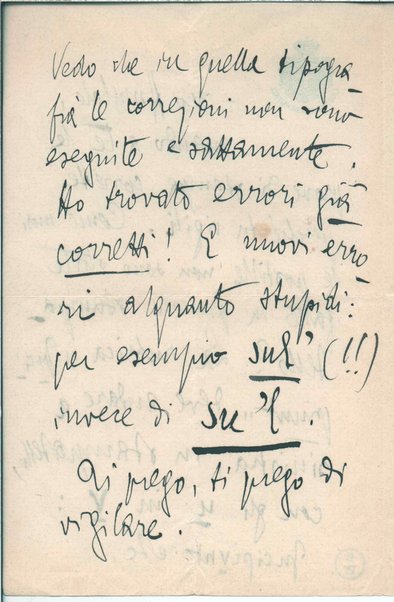 Vedo che in quella tipogra
fia le correzioni non sono
eseguite esattamente.
Ho trovato errori già
corretti! E nuovi erro
ri alquanto stupidi:
per esempio sul' (!!)
invece di su 'l.
Ti prego, ti prego di
vigilare.